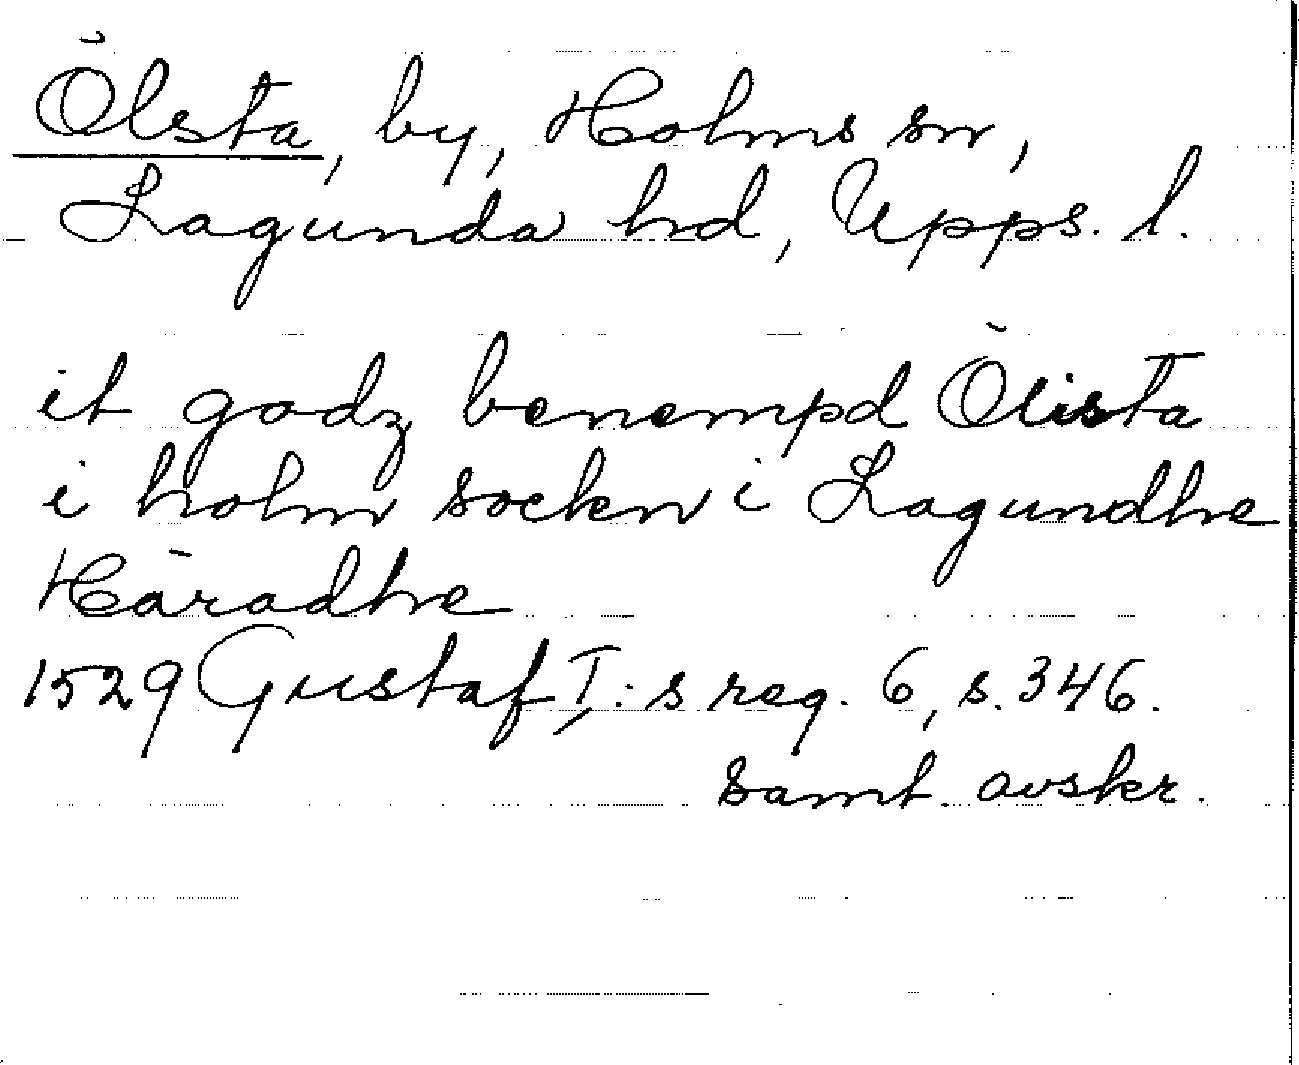 Ölsta, by, Holms sn,
Lagunda hd, Upps. l.
it godz benempd Ölista
i holm sockn i Lagundhe
Häradhe
1529 Gustaf I:s reg. 6, s. 346.
Samt. avskr.